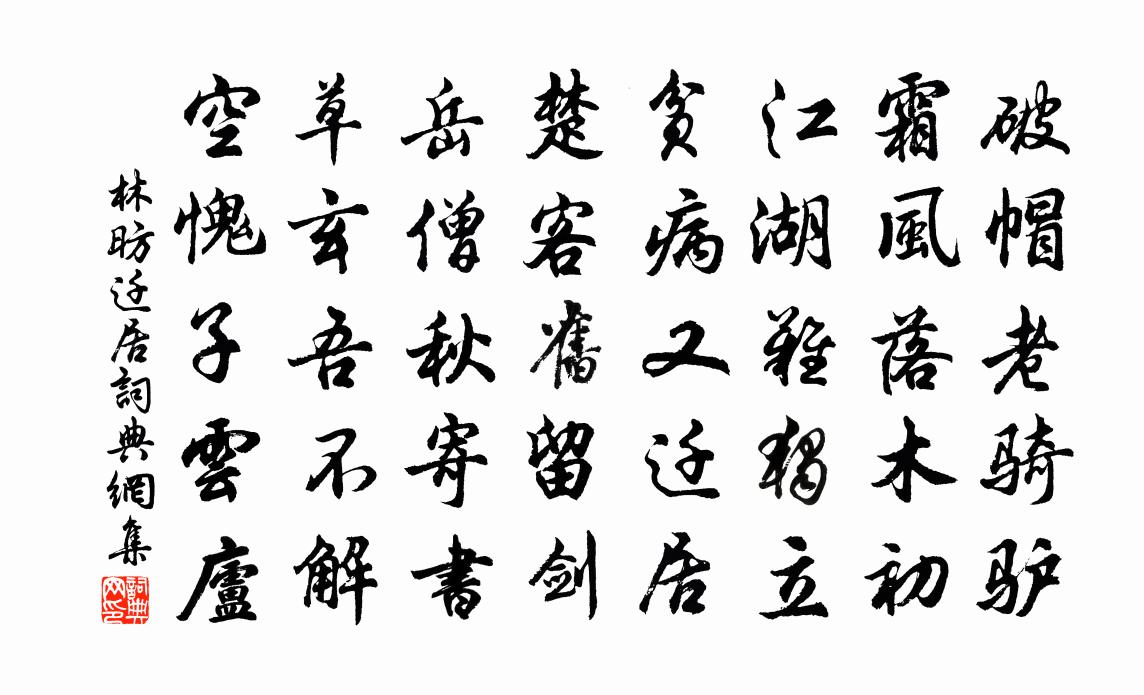 破帽老骑驴
霜風落木初
江湖難獨立
貧病又迁居
楚客舊留剑
岳僧秋寄書
草玄吾不解
空愧子雲廬
林昉迁居詞典網集
詞典网印